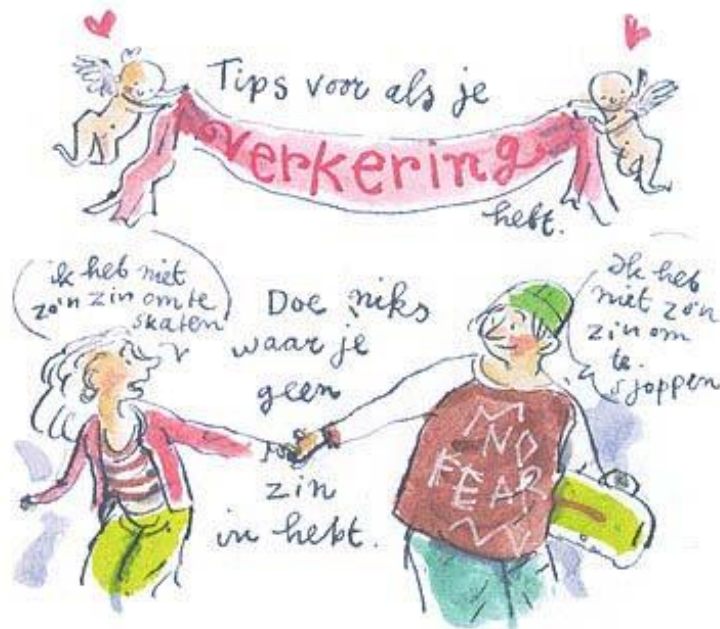 Tips voor als je
verkering
hebt.
ik heb niet
zo'n zin om te
skaten
Doe niks
waar je
geen
zin
in hebt.
Ik heb
niet zo'n
zin om
te
sjoppen
NO
FEAR